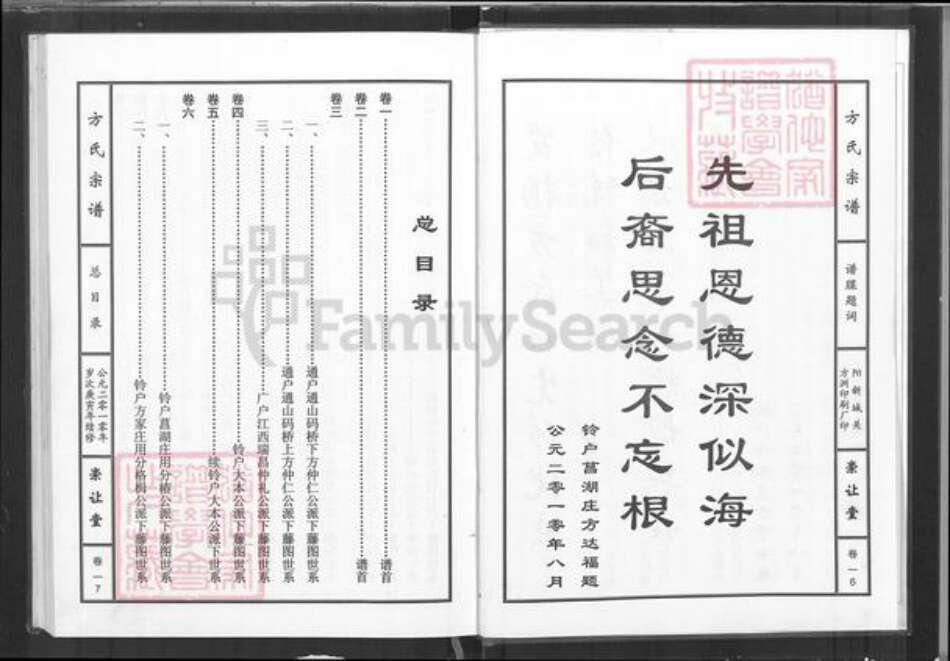 方氏宗谱
谱牒题词
阳新城关
方洲印刷厂印
崇让堂
卷一6
先祖恩德深似海
后裔思念不忘根
铃户菖湖庄方达福题
公元二零一零年八月
总目录
卷一 谱首
卷二 谱首
卷三
一、 通户通山码桥下方仲仁公派下藤图世系
二、 通户通山码桥上方仲仁公派下藤图世系
三、 广户江西瑞昌仲礼公派下藤图世系
卷四 铃户大本公派下藤图世系
卷五 续铃户大本公派下世系
卷六
一、 铃户菖湖庄用分椿公派下藤图世系
二、 铃户方家庄用分格梅公派下藤图世系
方氏宗谱
总目录
公元二零一零年
岁次庚寅年续修
崇让堂
卷一7
FamilySearch